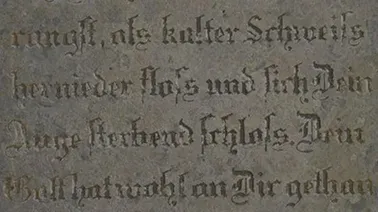 rangst, als kalter Schweiss
hernieder floss und sich Dein
Auge sterbend schloss. Dein
Gott hat wohl an Dir gethan